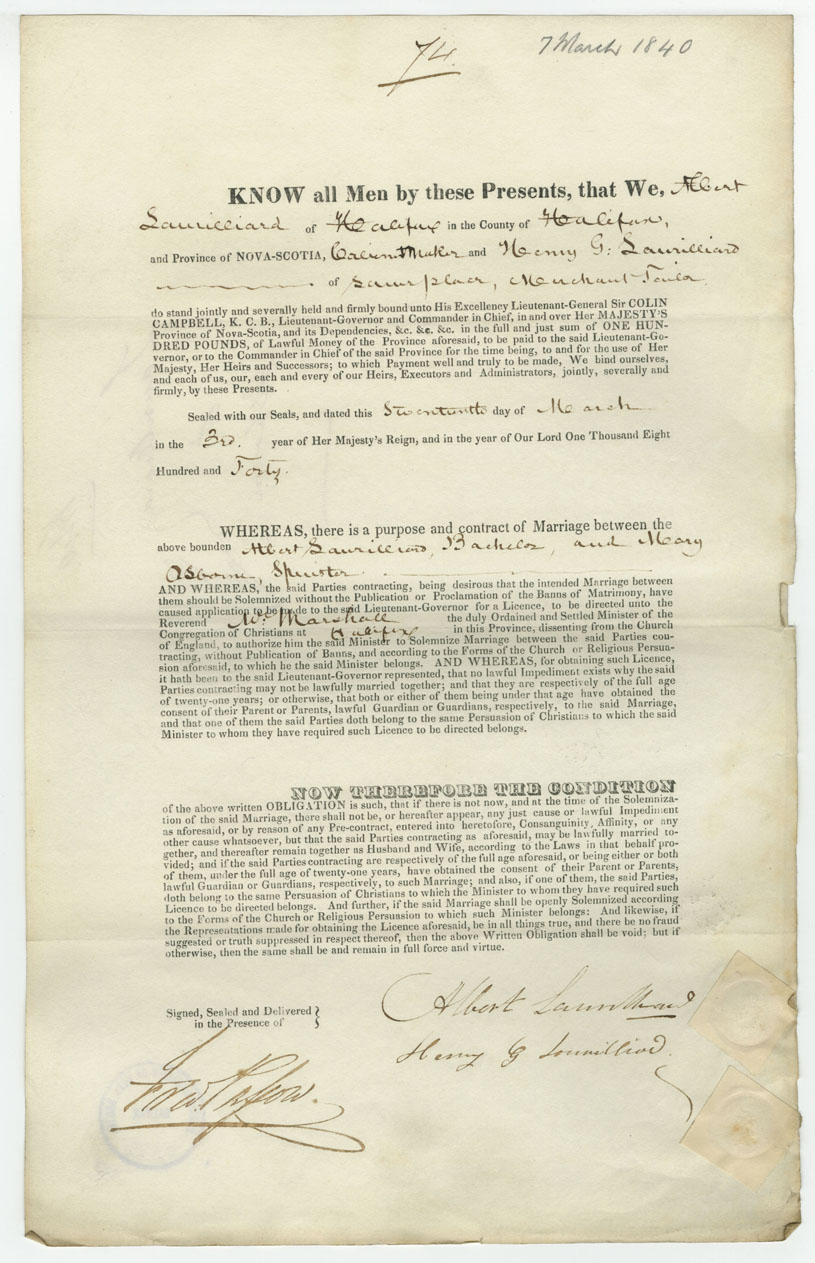 74.
7 March 1840
KNOW all Men by these Presents, that We, Albert
Laurilliard of Halifax in the County of Halifax,
and Province of NOVA-SCOTIA, Cabinet Maker and Henry G: Laurilliard
of same place, Merchant Tailor
do stand jointly and severally held and firmly bound unto His Excellency Lieutenant-General Sir COLIN
CAMPBELL, K. C. B., Lieutenant-Governor and Commander in Chief, in and over Her MAJESTY'S
Province of Nova-Scotia, and its Dependencies, &c. &c. &c. in the full and just sum of ONE HUN-
DRED POUNDS, of Lawful Money of the Province aforesaid, to be paid to the said Lieutenant-Go-
vernor, or to the Commander in Chief of the said Province for the time being, to and for the use of Her
Majesty, Her Heirs and Successors; to which Payment well and truly to be made, We bind ourselves,
and each of us, our, each and every of our Heirs, Executors and Administrators, jointly, severally and
firmly, by these Presents.
Sealed with our Seals, and dated this day of March
in the 3rd. year of Her Majesty's Reign, and in the year of Our Lord One Thousand Eight
Hundred and Forty.
WHEREAS, there is a purpose and contract of Marriage between the
above bounden Albert Laurilliard, Bachelor, and Mary
Osborne, Spinster
AND WHEREAS, the said Parties contracting, being desirous that the intended Marriage between
them should be Solemnized without the Publication or Proclamation of the Banns of Matrimony, have
caused application to be made to the said Lieutenant-Governor for a Licence, to be directed unto the
Reverend Mr. Marshall the duly Ordained and Settled Minister of the
Congregation of Christians at Halifax in this Province, dissenting from the Church
of England, to authorize him the said Minister to Solemnize Marriage between the said Parties con-
tracting, without Publication of Banns, and according to the Forms of the Church or Religious Persua-
sion aforesaid, to which he the said Minister belongs. AND WHEREAS, for obtaining such Licence,
it hath been to the said Lieutenant-Governor represented, that no lawful Impediment exists why the said
Parties contracting may not be lawfully married together; and that they are respectively of the full age
of twenty-one years; or otherwise, that both or either of them being under that age have obtained the
consent of their Parent or Parents, lawful Guardian or Guardians, respectively, to the said Marriage,
and that one of them the said Parties doth belong to the same Persuasion of Christians to which the said
Minister to whom they have required such Licence to be directed belongs.
NOW THEREFORE THE CONDITION
of the above written OBLIGATION is such, that if there is not now, and at the time of the Solemniza-
tion of the said Marriage, there shall not be, or hereafter appear, any just cause or lawful Impediment
as aforesaid, or by reason of any Pre-contract, entered into heretofore, Consanguinity, Affinity, or any
other cause whatsoever, but that the said Parties contracting as aforesaid, may be lawfully married to-
gether, and thereafter remain together as Husband and Wife, according to the Laws in that behalf pro-
vided; and if the said Parties contracting are respectively of the full age aforesaid, or being either or both
of them, under the full age of twenty-one years, have obtained the consent of their Parent or Parents,
lawful Guardian or Guardians, respectively, to such Marriage; and also, if one of them, the said Parties,
doth belong to the same Persuasion of Christians to which the Minister to whom they have required such
Licence to be directed belongs. And further, if the said Marriage shall be openly Solemnized according
to the Forms of the Church or Religious Persuasion to which such Minister belongs: And likewise, if
the Representations made for obtaining the Licence aforesaid, be in all things true, and there be no fraud
suggested or truth suppressed in respect thereof, then the above Written Obligation shall be void; but if
otherwise, then the same shall be and remain in full force and virtue.
Signed, Sealed and Delivered
in the Presence of
Albert Laurilliard
Henry G Laurilliard.